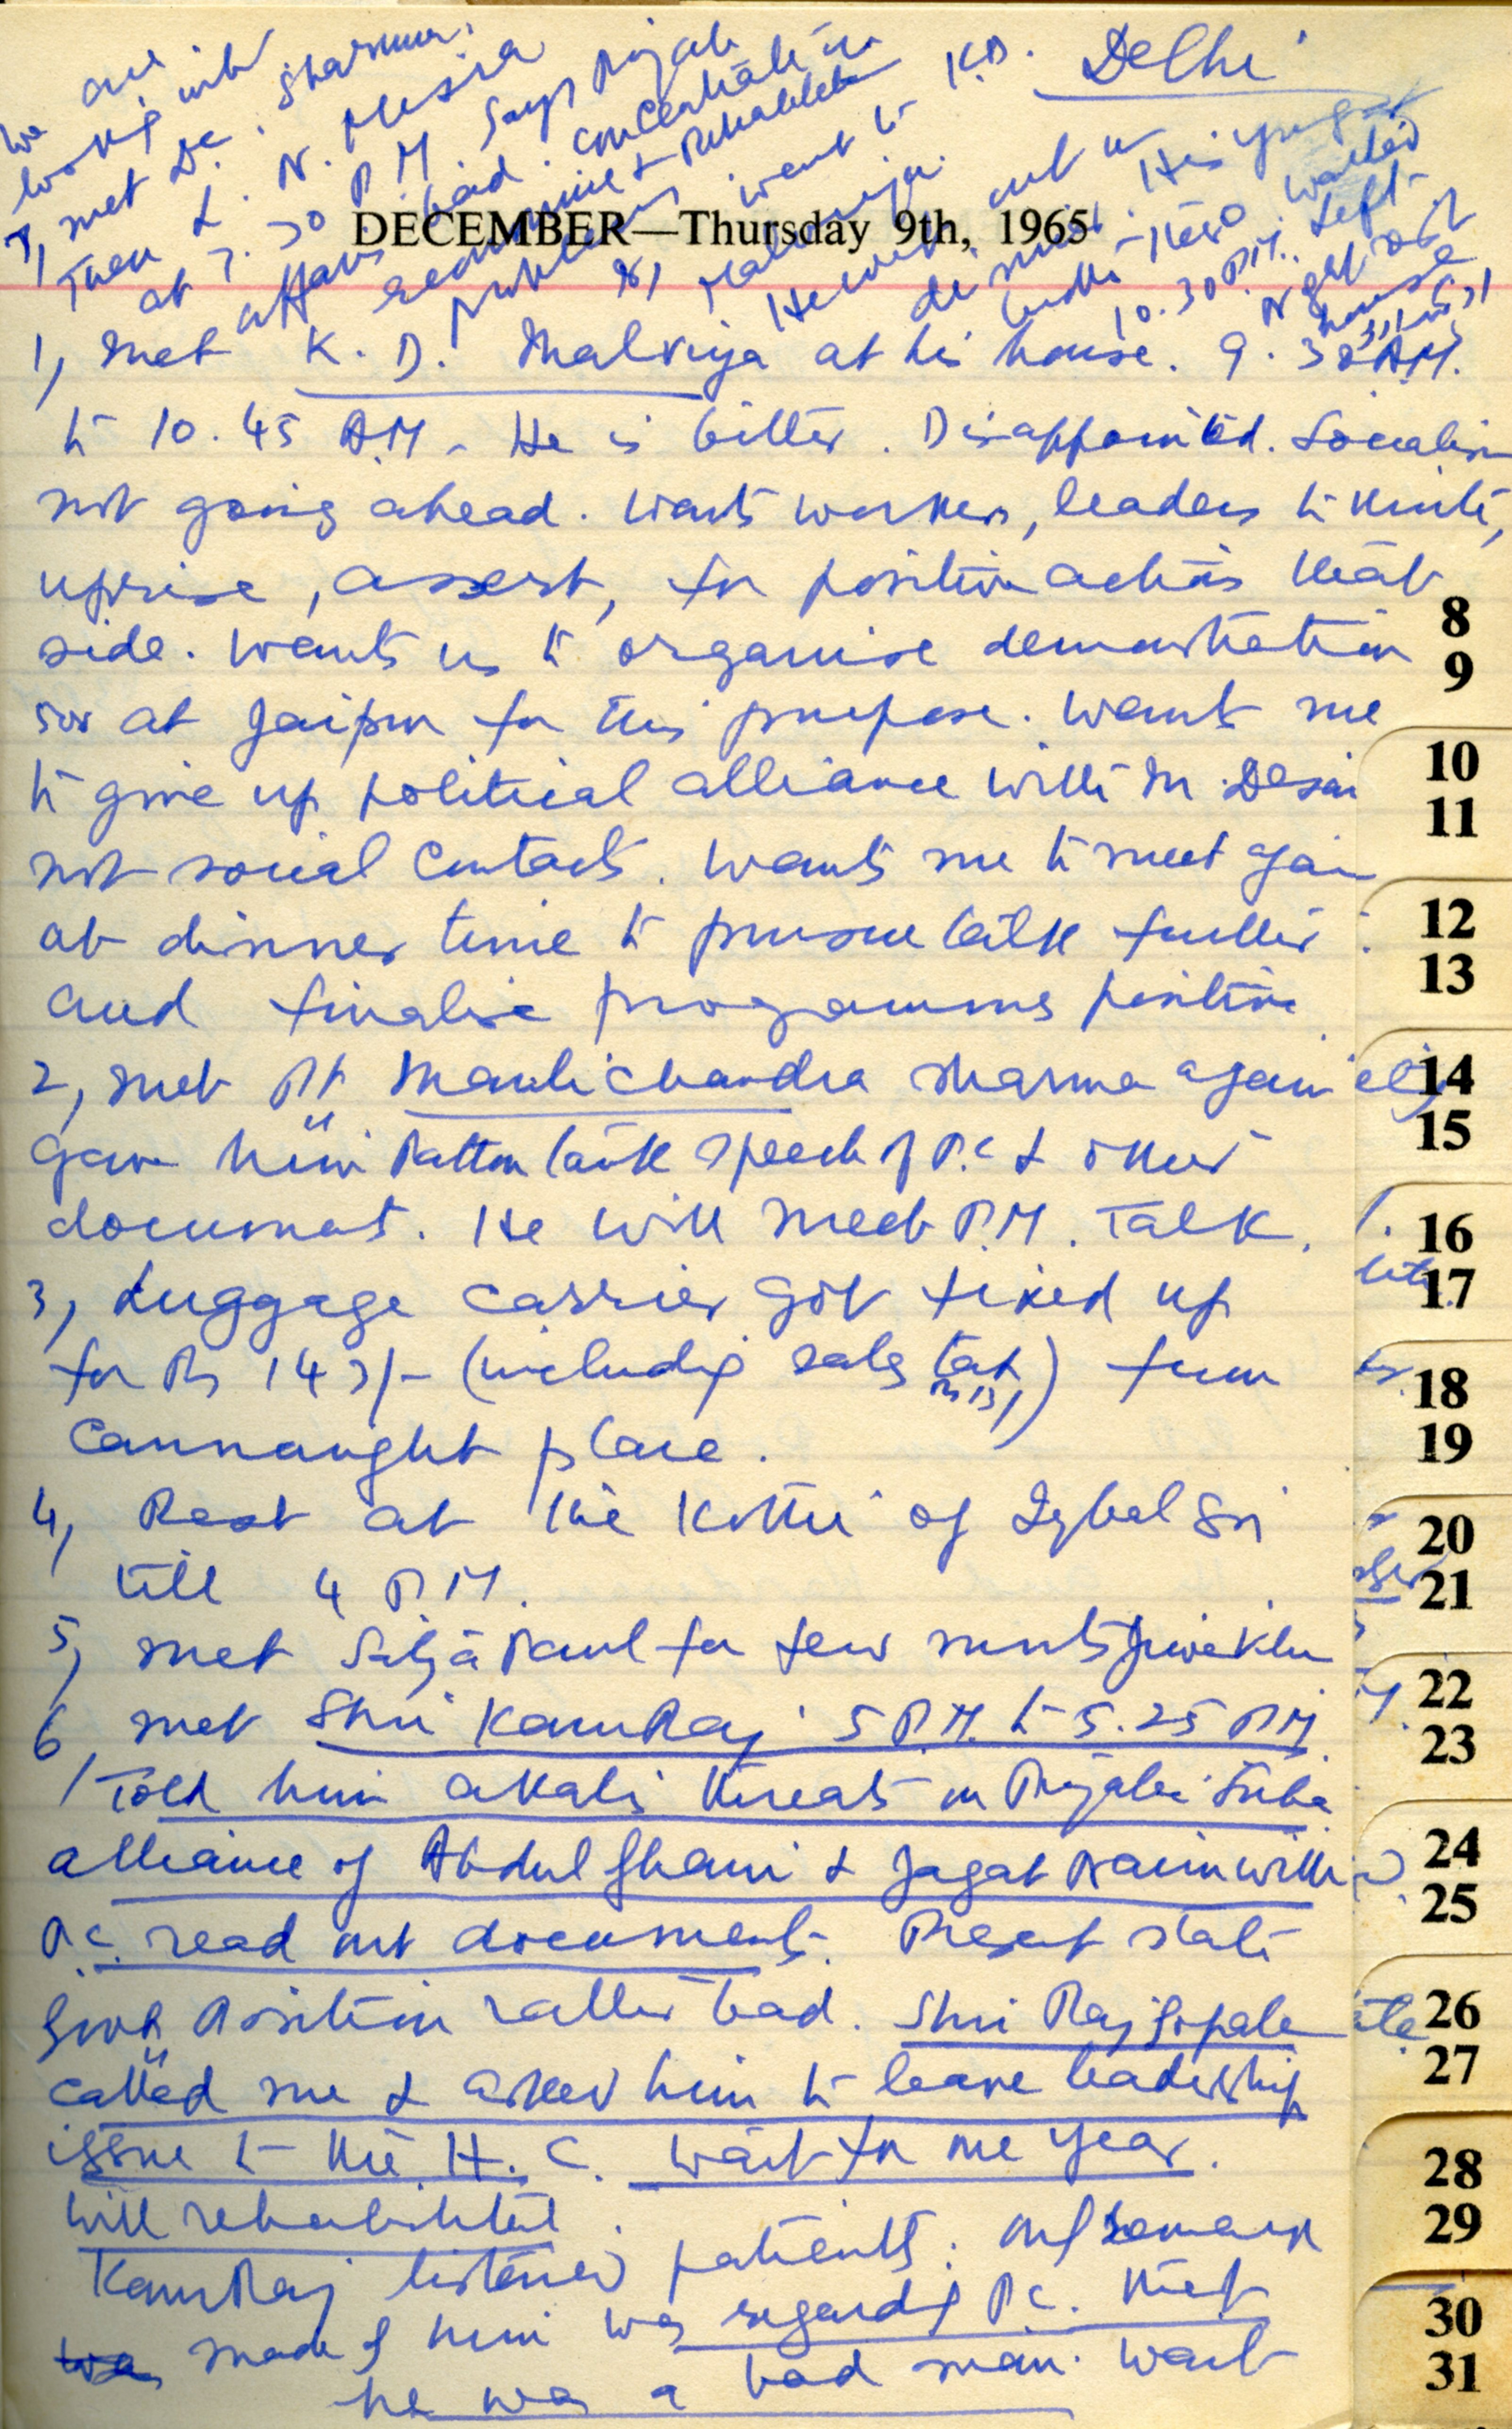 Delhi
DECEMBER—Thursday 9th, 1965
1, met K. D. Malviya at his house. 9.30 A.M.
to 10.45 A.M. He is bitter. Disappointed. Socialism
not going ahead. Wants workers, leaders to unite,
uprise, assert, for positive actions that
side. Wants us to organise demonstration
at Jaipur for this purpose. Wants me
to give up political alliance with M. Desai
not social contacts. Wants me to meet again
at dinner time to pursue talk further
and finalise programms positive
2, met Pt Maulichandra Sharma again
gave him Patton tank speech of P.C & other
documents. He will meet P.M. Talk.
3, Luggage carrier got fixed up
for Rs 143/- (includig sales tax Rs 13/) from
Cannaught place.
4, Rest at the Kothi of Iqbal Sn
till 4 P.M.
5, met Satya Paul for few
6, met Shri KamRaj 5 P.M. to 5.25 P.M.
Told him Akalis threats on Punjabi Suba
alliance of Abdul Ghani & Jagat Narain with
P.C. read out documents. Present state
Govt Position rather bad. Shri Raj Gopalan
called me & asked him to leave leadership
issue to the H. C. Wait for one year.
Will rehabilitate.
KamRaj listened patiently. Only remark
made by him was regardig P.C. that
he was a bad man. Want
we are
workig with
7, met Dr. Sharma,
Then L. N. Misra
at 7.30 P.M. Says Punjab
affairs bad. concentrate on
economics & rehabilitation
problems. Went to K.D.
8, Malaviya.
10.30 P.M. Left
Night at
house
8
9
10
11
12
13
14
15
16
17
18
19
20
21
22
23
24
25
26
27
28
29
30
31